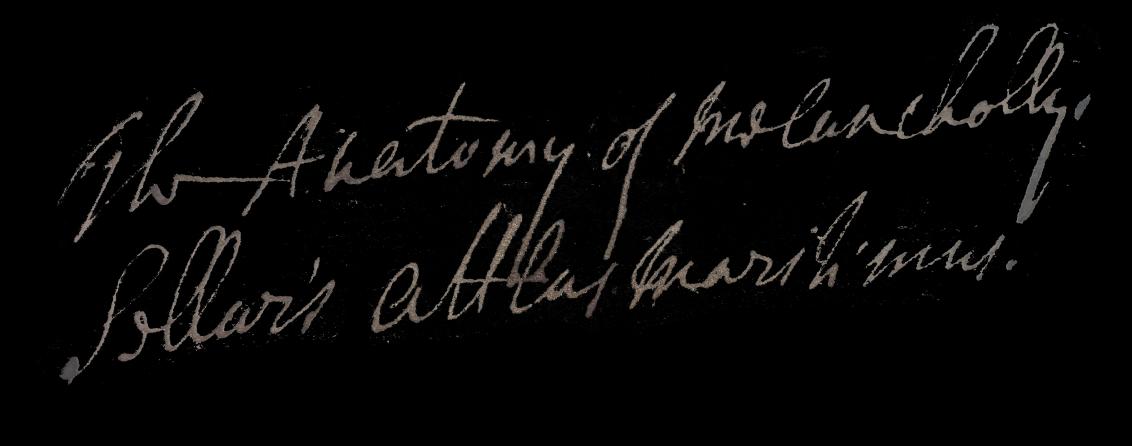 The Anatomy of Melancholly.
Sellar's Attlas Maritimus.